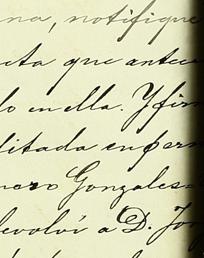 na, notifique
cta que antece
lo en ella. Y fir
litada en per
Gonzales
devolví a D. Jo